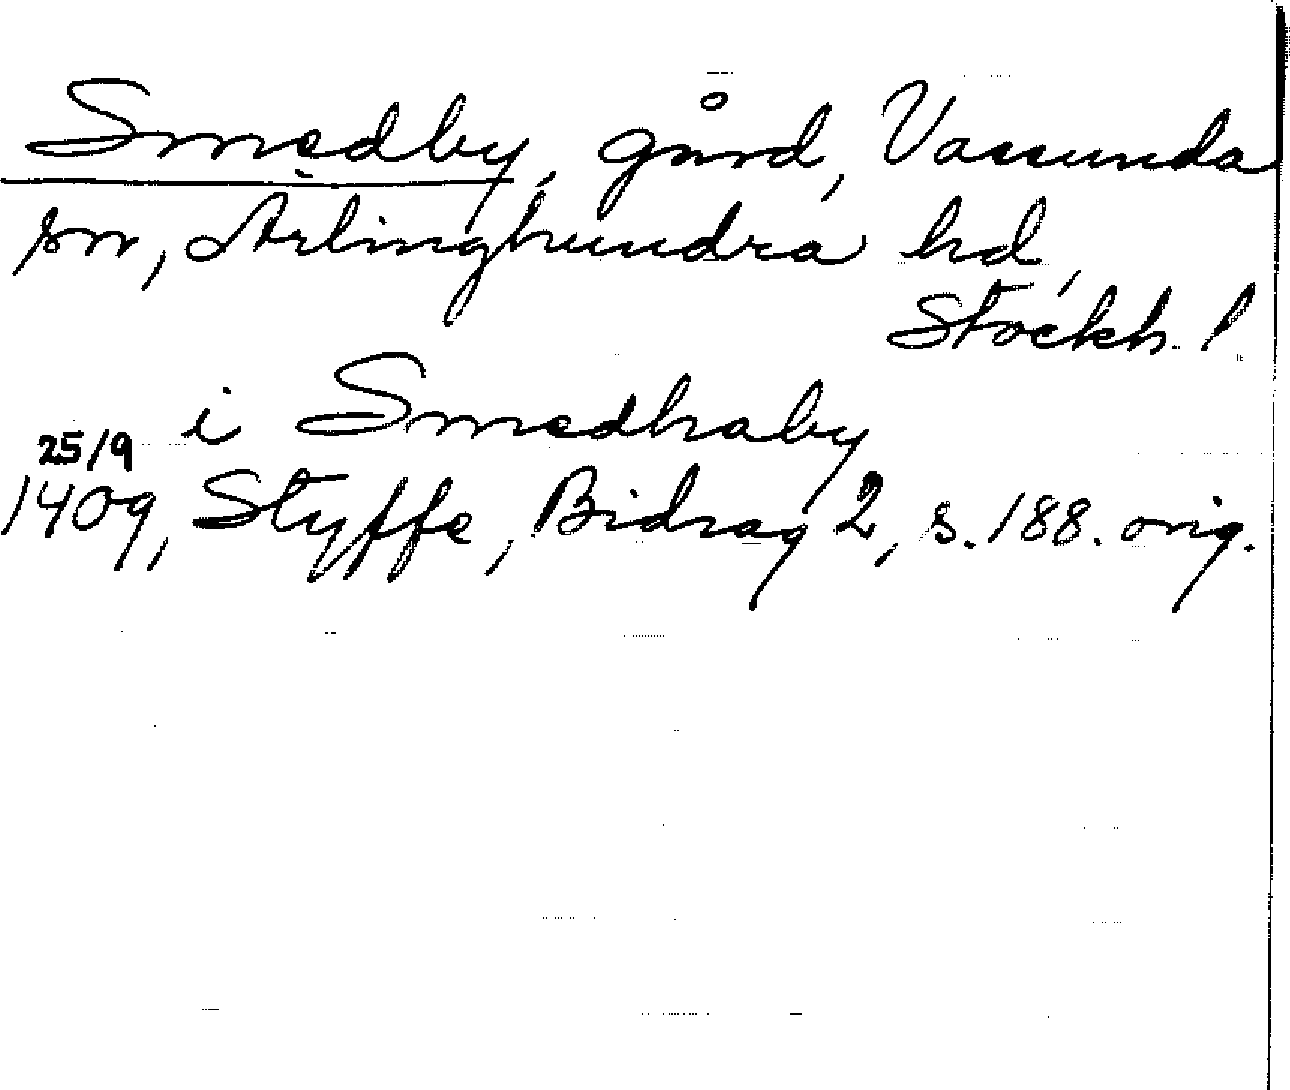 Smedby, gård, Vassunda
sn, Ärlinghundra hd,
Stockh. l
i Smedhaby
25/9
1409, Styffe, Bidrag 2, s. 188. orig.